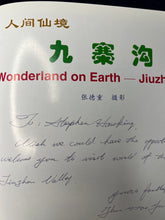 人间仙境
九寨沟
Wonderland on Earth — Jiuzh
张德重 摄影
To: Stephen Hawking,
Wish we could have the
welcome you to visit world of the
Jiuzhai Valley
yours